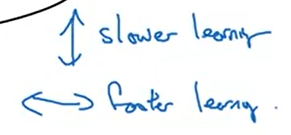 slower learning
faster learning.